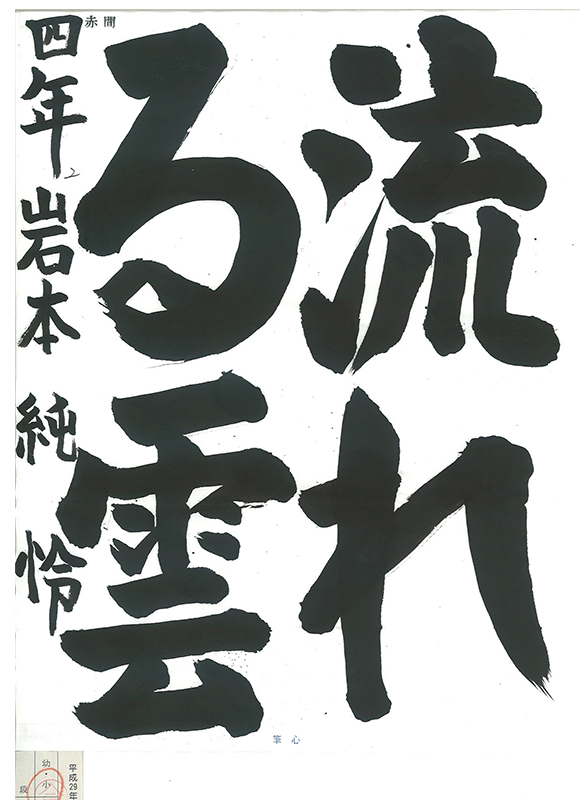 流れ
る雲
赤間
四年 岩本 純怜
心筆
平成29年
幼・小
段